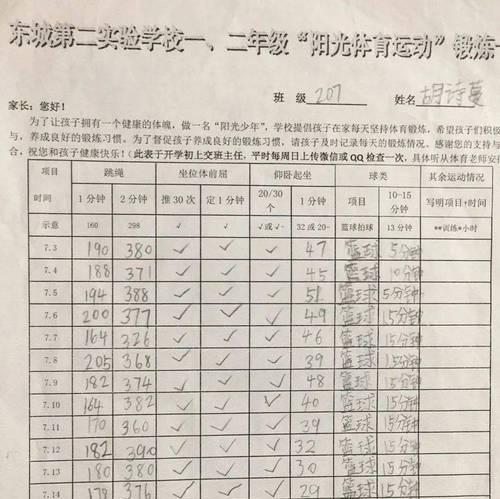 东城第二实验学校一、二年级“阳光体育运动”锻炼
班 级 207 姓名 胡诗蔓
家长：您好！
为了让孩子拥有一个健康的体魄，做一名“阳光少年”，学校提倡孩子在家每天坚持体育锻炼，希望孩子们积极
与，养成良好的锻炼习惯。为了督促孩子养成良好的锻炼习惯，请孩子及时记录每天的锻炼情况。感谢您的支持与
合，祝您和孩子健康快乐！（此表于开学初上交班主任，平时每周日上传微信或 QQ 检查一次，具体听从体育老师安
项目 跳绳 坐位体前屈 仰卧起坐 球类 其余运动情况
时间 1 分钟 2 分钟 推 30 次 定 1 分钟 20/30 个 1 分钟 项目 10-15 分钟 写明项目+时间
示意 160 298 √ √ √或√- 32 或 20- 篮球拍球 13 分钟 **训练*小时
7.3 190 380 ✓ ✓ ✓ 47 篮球 5分钟
7.4 188 371 ✓ ✓ ✓ 45 篮球 10分钟
7.5 194 388 ✓ ✓ ✓ 51 篮球 5分钟
7.6 200 377 ✓ ✓ ✓ 49 篮球 15分钟
7.7 164 326 ✓ ✓ ✓ 46 篮球 15分钟
7.8 205 368 ✓ ✓ ✓ 39 篮球 15分钟
7.9 182 374 ✓ ✓ ✓ 48 篮球 15分钟
7.10 164 382 ✓ ✓ ✓ 40 篮球 15分钟
7.11 170 360 ✓ ✓ ✓ 39 篮球 15分钟
7.12 182 390 ✓ ✓ ✓ 32 篮球 15分钟
7.13 180 380 ✓ ✓ ✓ 30 篮球 15分钟
7.14 178 376 ✓ ✓ ✓ 29 篮球 15分钟